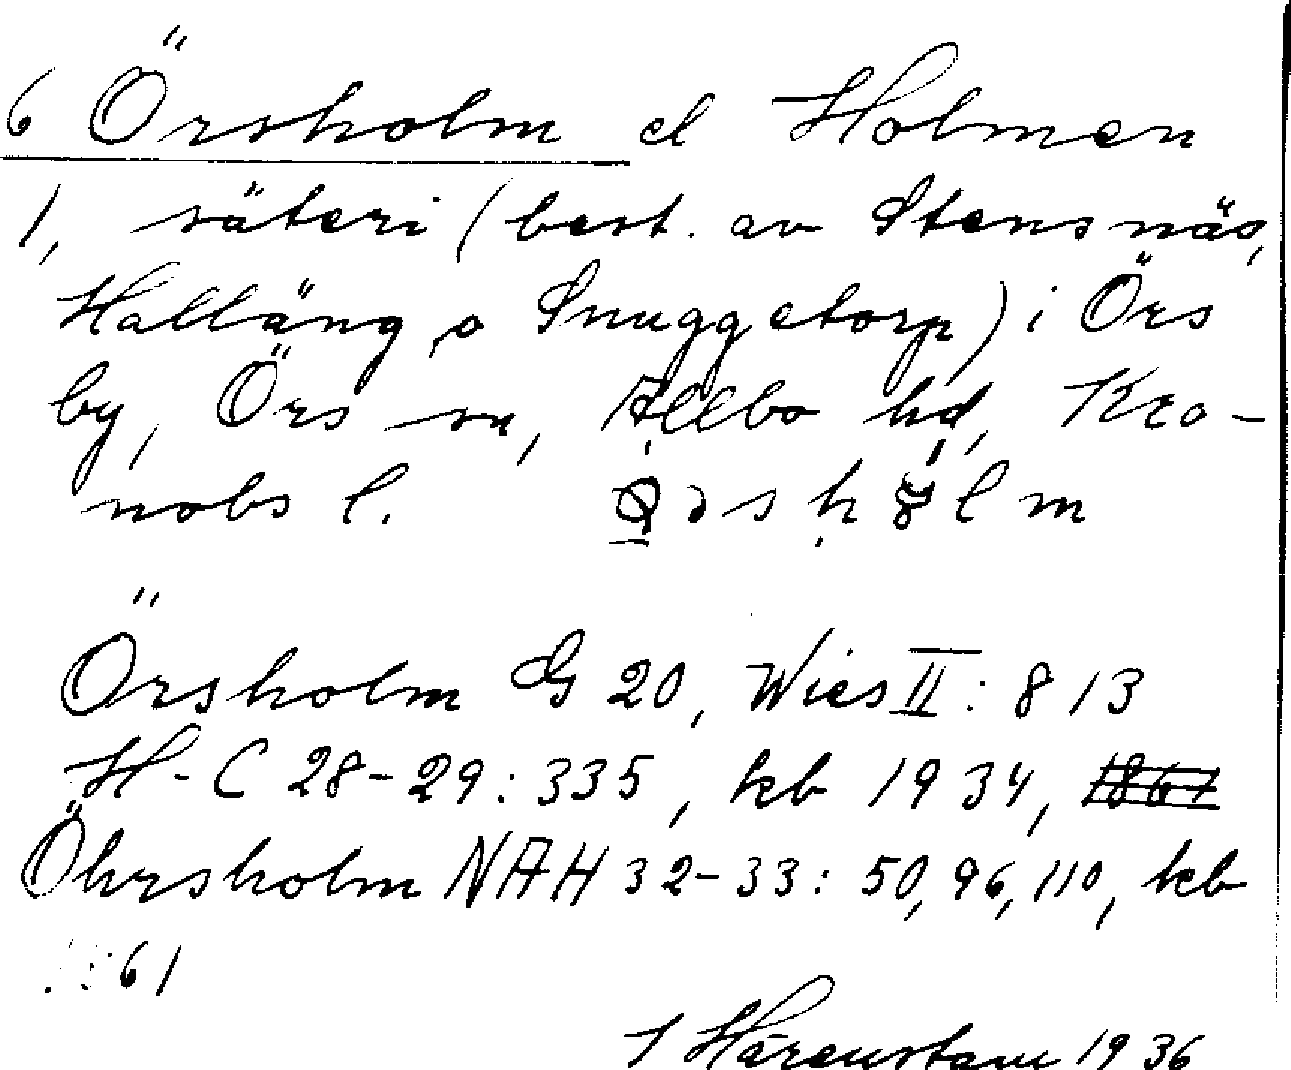 6 Örsholm el Holmen
1, säteri (best. av Stensnäs,
Halläng o Snuggetorp) i Örs
by, Örs sn, Allbo hd, Kro-
nobs l.
Örsholm G 20, Wies II: 813
H-C 28-29: 335, kb 1934, 1861
Öhrsholm NAH 32-33: 50, 96, 110, kb
1861
Härenstam 1936